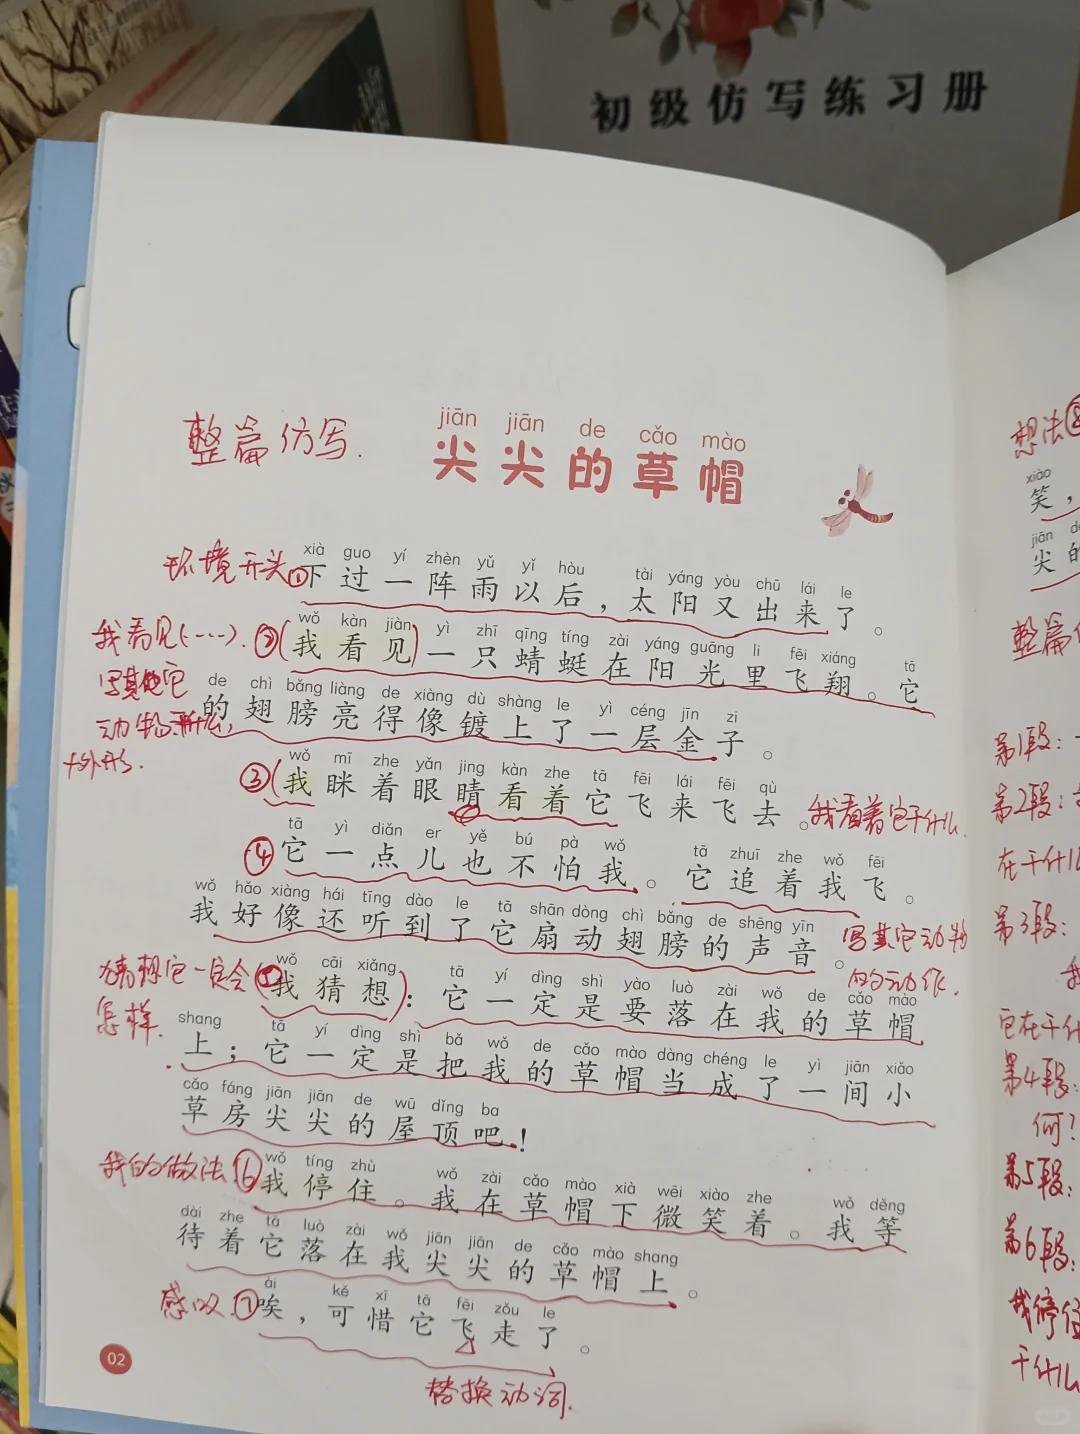 初级仿写练习册
整篇仿写.
jiān jiān de cǎo mào
尖尖的草帽
xià guo yí zhèn yǔ yǐ hòu tài yáng yòu chū lái le
环境开头①下过一阵雨以后，太阳又出来了。
wǒ kàn jiàn yì zhī qīng tíng zài yáng guāng li fēi xiáng tā
我看见(……).②(我看见)一只蜻蜓在阳光里飞翔。它
写其他它
de chì bǎng liàng de xiàng dù shàng le yì céng jīn zi
的翅膀亮得像镀上了一层金子。
动物
+外形.
wǒ mī zhe yǎn jing kàn zhe tā fēi lái fēi qù
③(我眯着眼睛看着它飞来飞去。我看着它干什么.
tā yì diǎn er yě bú pà wǒ tā zhuī zhe wǒ fēi
④它一点儿也不怕我。它追着我飞。
wǒ hǎo xiàng hái tīng dào le tā shān dòng chì bǎng de shēng yīn
我好像还听到了它扇动翅膀的声音。写其它动物
的动作.
wǒ cāi xiǎng tā yí dìng shì yào luò zài wǒ de cǎo mào
猜想它一定会(⑤我猜想)：它一定是要落在我的草帽
怎样.
shang tā yí dìng shì bǎ wǒ de cǎo mào dàng chéng le yì jiān xiǎo
上；它一定是把我的草帽当成了一间小
cǎo fáng jiān jiān de wū dǐng ba
草房尖尖的屋顶吧！
wǒ tíng zhù wǒ zài cǎo mào xià wēi xiào zhe wǒ děng
我的做法⑥我停住。我在草帽下微笑着。我等
dài zhe tā luò zài wǒ jiān jiān de cǎo mào shang
待着它落在我尖尖的草帽上。
ài kě xī tā fēi zǒu le
感叹.⑦唉，可惜它飞走了。
替换动词.
02
想法
xiào
笑，
jiān de
尖的
整篇
第1段：
第2段：
在干什么
第3段：
我
它在干什
第4段：
何？
第5段：
第6段：
我停住
干什么